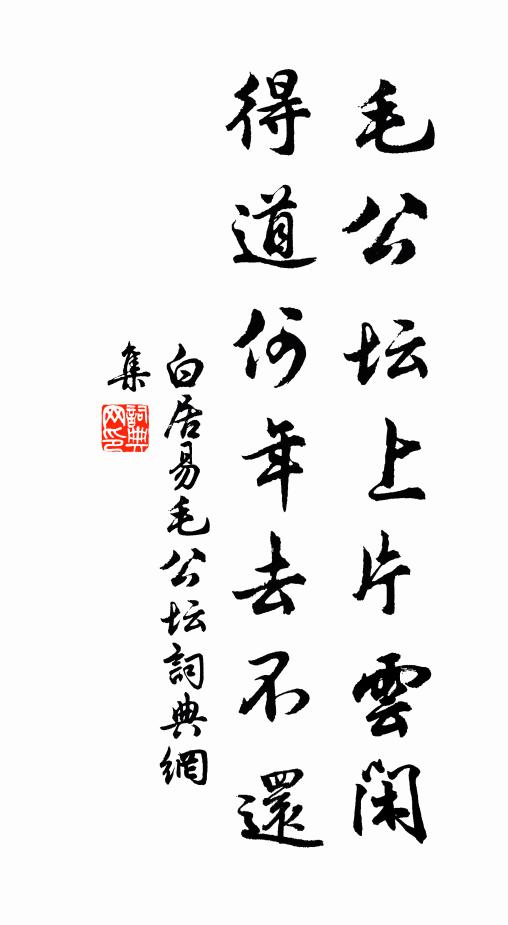 毛公坛上片雲閑
得道何年去不還
白居易毛公坛詞典網
集
詞典网印